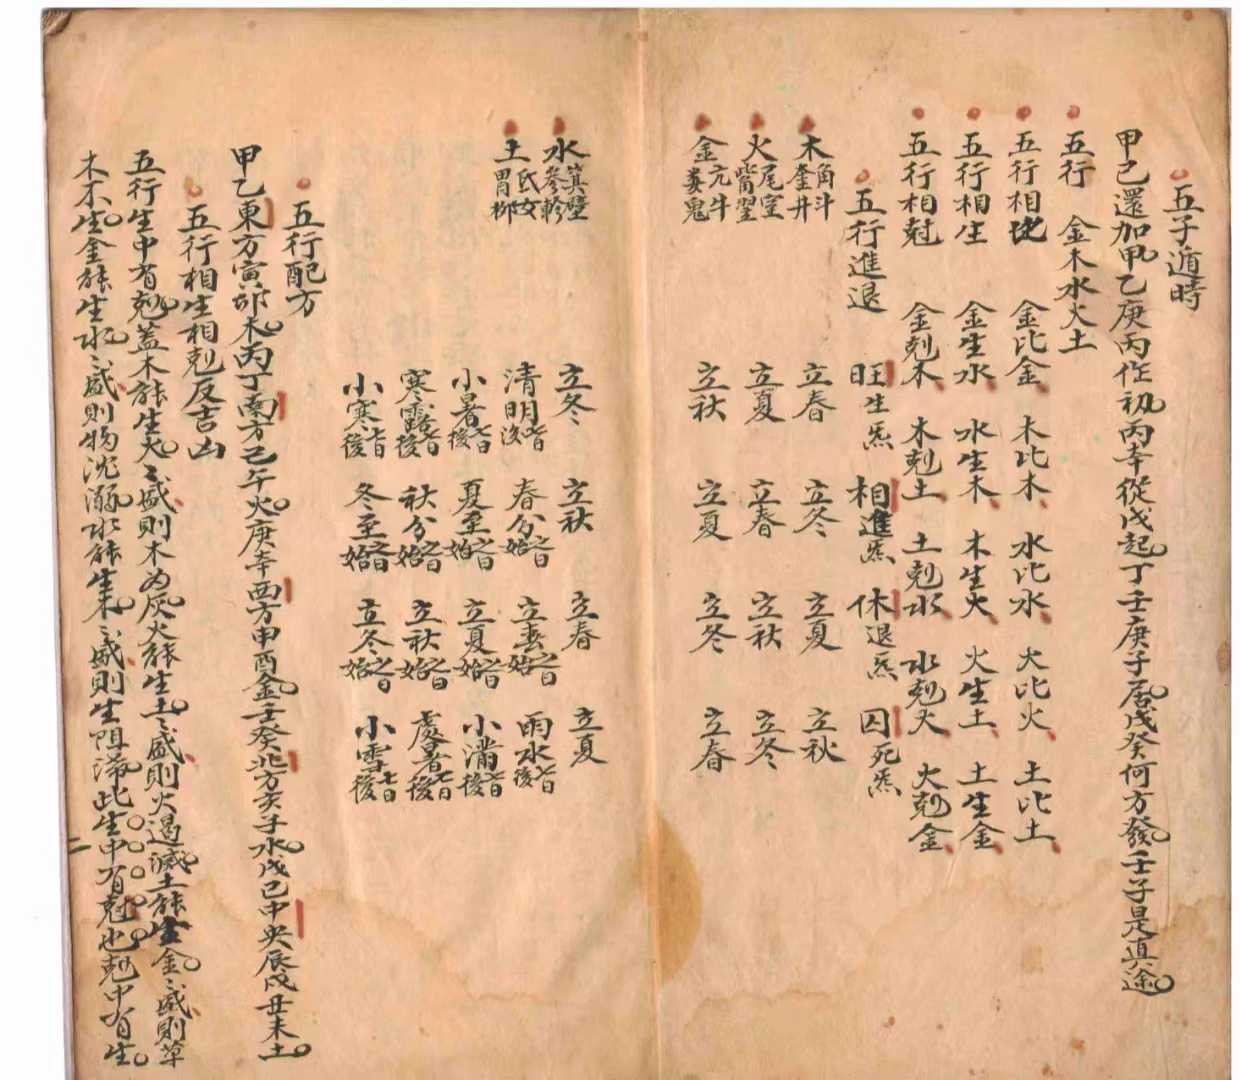 五子遁時
甲己還加甲乙庚丙作初丙辛從戊起丁壬庚子居戊癸何方發壬子是真途
五行 金木水火土
五行相比 金比金 木比木 水比水 火比火 土比土
五行相生 金生水 水生木 木生火 火生土 土生金
五行相尅 金剋木 木剋土 土剋水 水剋火 火剋金
五行進退 旺生炁 相進炁 休退炁 囚死炁
木 角斗奎井 立春 立冬 立夏 立秋
火 尾室觜翌 立夏 立春 立秋 立冬
金 亢牛娄鬼 立秋 立夏 立冬 立春
水 箕壁參軫 立冬 立秋 立春 立夏
土 氐女胃柳 清明後 春分之日始 立春之日始 雨水七日後
小暑七日後 夏至之日始 立夏之日始 小滿七日後
寒露七日後 秋分之日始 立秋之日始 處暑七日後
小寒七日後 冬至之日始 立冬之日始 小雪七日後
五行配方
甲乙東方寅卯木丙丁南方己午火庚辛西方申酉金壬癸北方亥子水戊己中央辰戌丑未土
五行相生相剋反吉凶
五行生中有剋蓋木能生火〻盛則木為灰火能生土〻盛則火遏滅土能生金〻盛則草
木不生金能生水〻盛則物沈溺水能生木〻盛則生阻滯此生中有尅也剋中有生
二